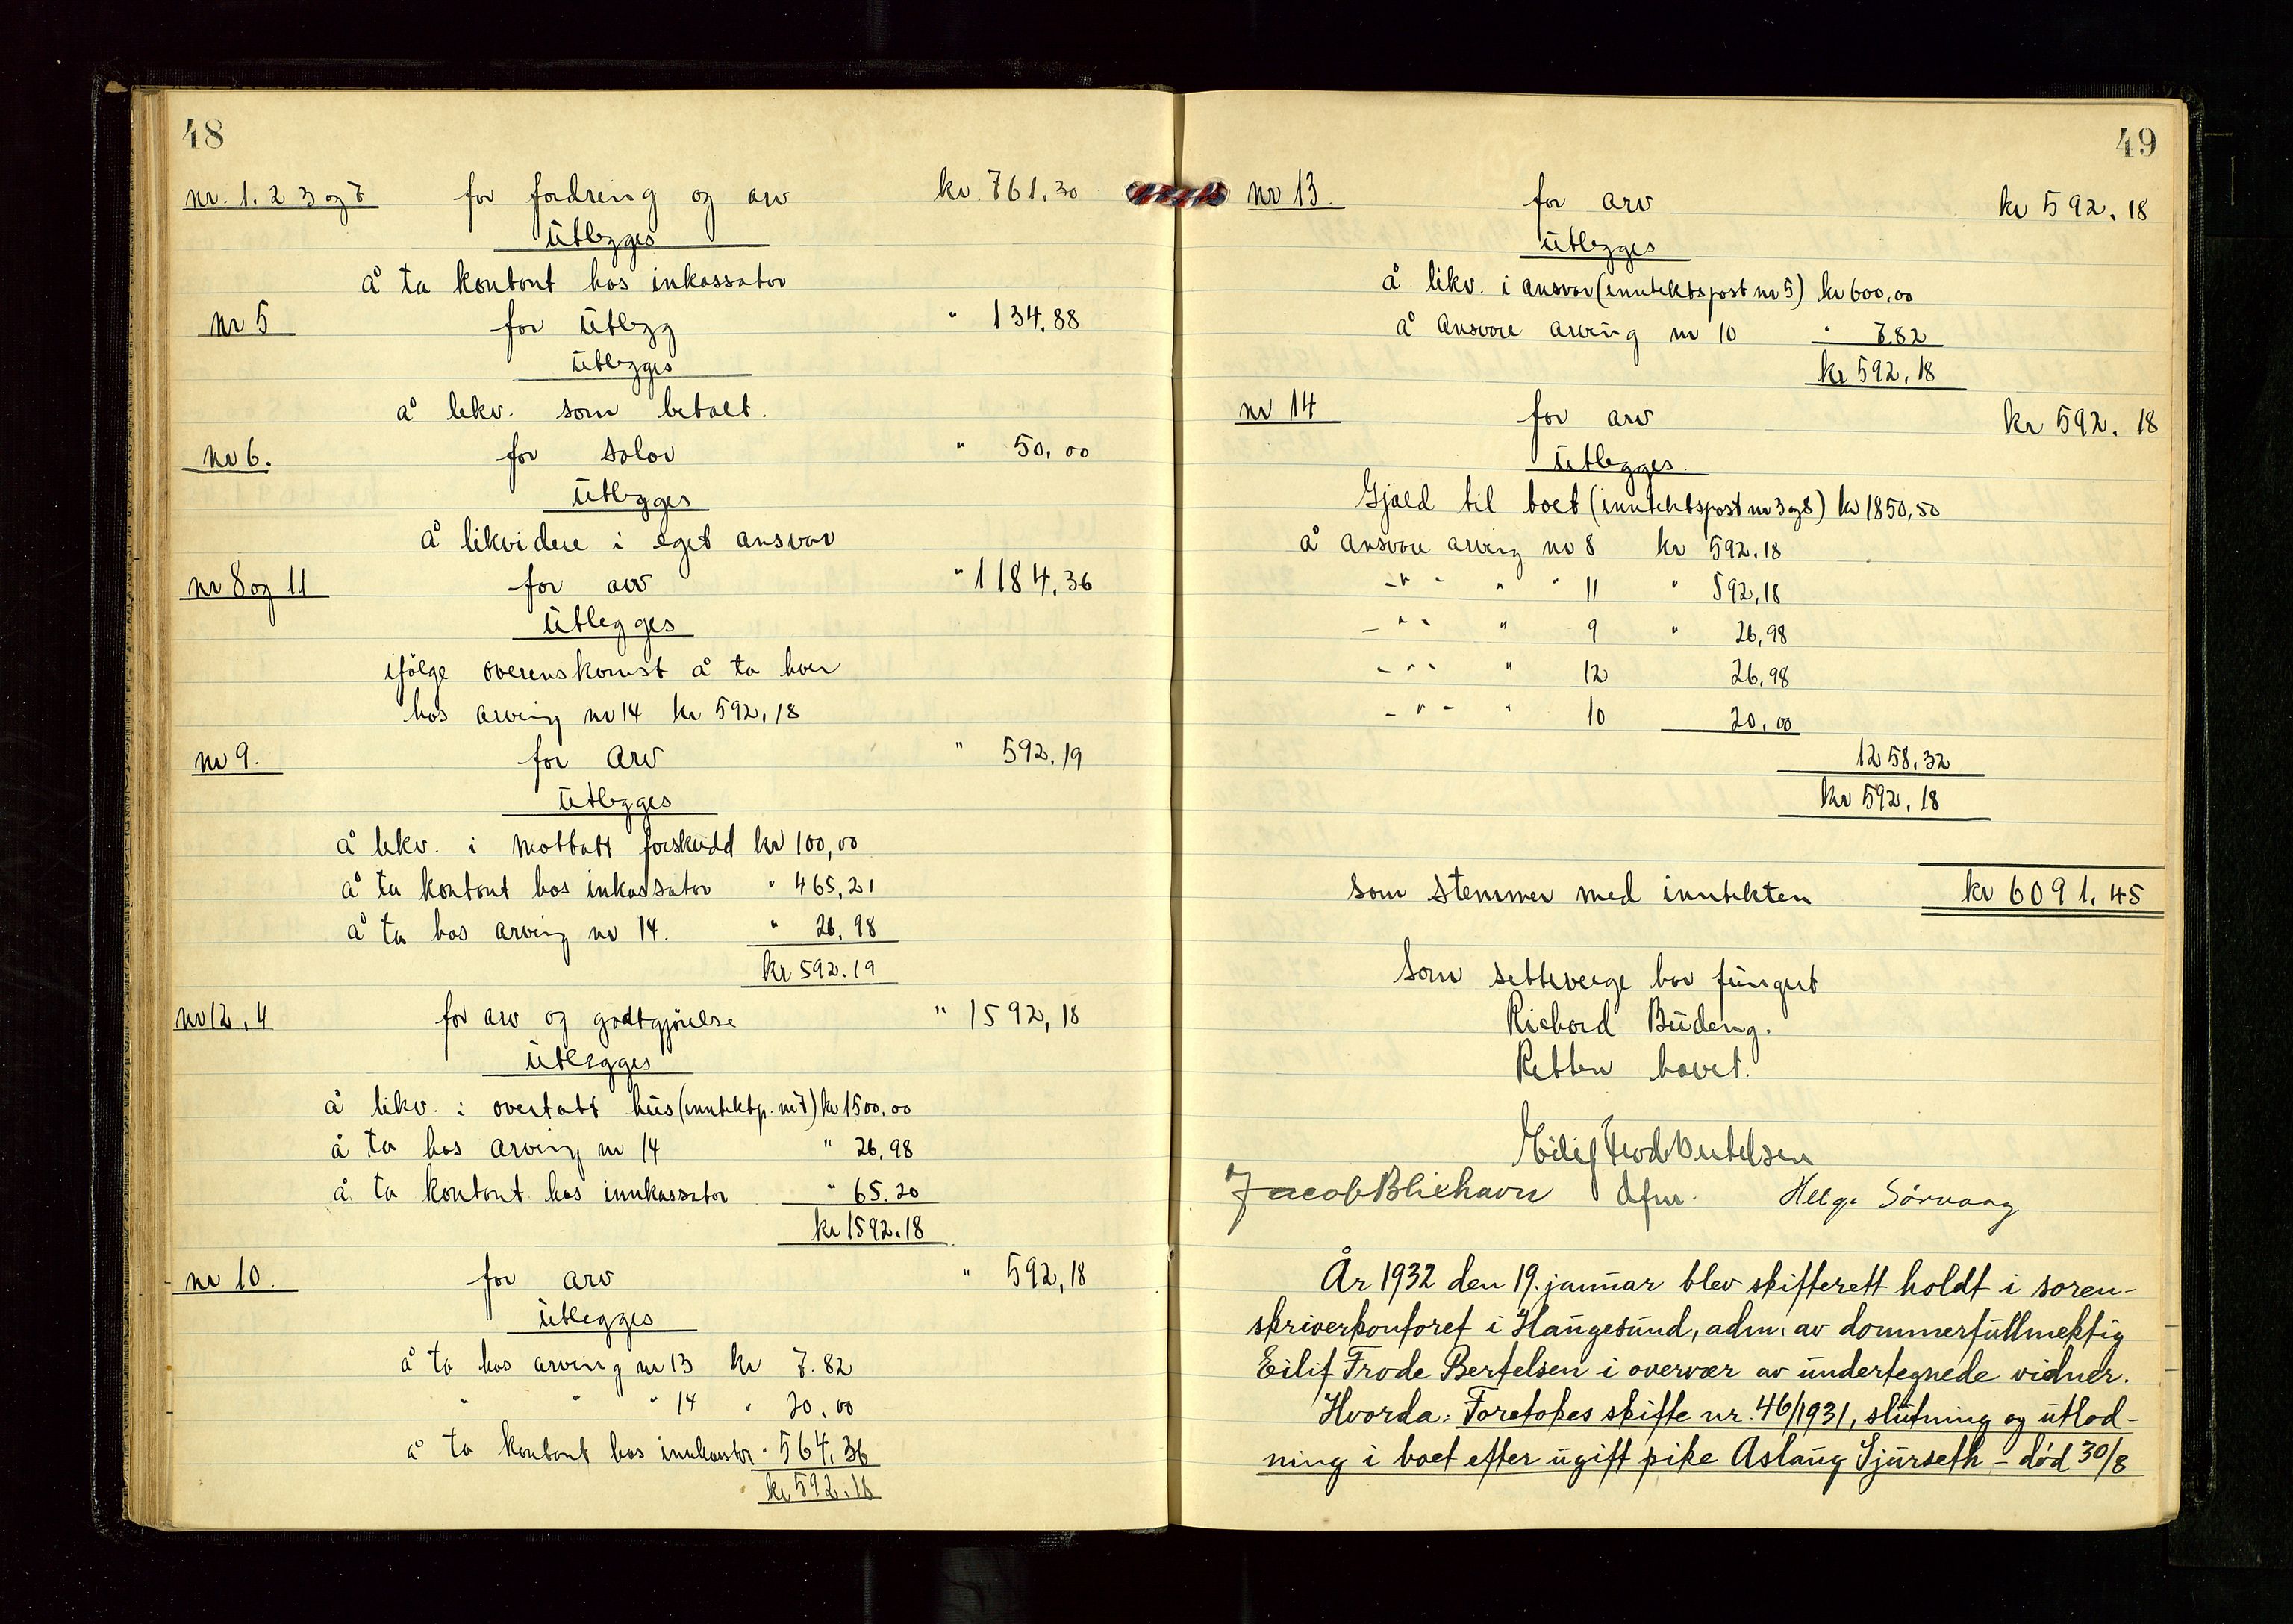 48
nr. 1. 2 3 og 7 for fordring og arv kr. 761,30
Utlegges
å ta kontant hos inkassator
nr 5 for utlegg " 134,88
Utlegges
å likv. som betalt.
nr 6. for salær " 50,00
Utlegges
å likvidere i eget ansvar
nr 8 og 11 for arv " 1184,36
Utlegges
ifölge overenskomst å ta hver
hos arving nr 14 kr 592,18
nr 9. for arv " 592,19
Utlegges
å likv. i mottatt forskudd kr 100,00
å ta kontant hos inkassator " 465,21
å ta hos arving nr 14. " 26,98
kr 592.19
nr 12, 4 for arv og godtgjörelse " 1592,18
Utlegges
å likv. i overtatt hus (inntektp. nr 7) kr 1500,00
å ta hos arving nr 14 " 26,98
å ta kontant hos innkassator " 65.20
kr 1592.18
nr 10. for arv " 592,18
Utlegges
å ta hos arving nr 13 kr 7.82
" " " 14 " 20,00
å ta kontant hos innkassator " 564,36
kr 592.18
49
nr 13. for arv kr 592,18
Utlegges
å likv. i ansvar (inntektspost nr 5) kr 600,00
å ansvare arving nr 10 " 7.82
kr 592,18
nr 14 for arv kr 592,18
Utlegges.
Gjæld til boet (inntektspost nr 3 og 8) kr 1850,50
å ansvare arving nr 8 kr 592.18
-"- " " 11 " 592,18
-"- " 9 " 26,98
-"- " 12 26,98
-"- " 10 20,00
1258,32
kr 592,18
som stemmer med inntekten kr 6091,45
Som setteverge har fungert
Richard Budeng.
Retten hævet.
Eilif Frode Bertelsen
Jacob Bliehavn dfm. Helge Sörvaag
År 1932 den 19. januar blev skifterett holdt i soren-
skriverkontoret i Haugesund, adm. av dommerfullmektig
Eilif Frode Bertelsen i overvær av undertegnede vidner.
Hvorda: Foretokes skifte nr. 46/1931, slutning og utlod-
ning i boet efter ugift pike Aslaug Sjurseth - död 30/8